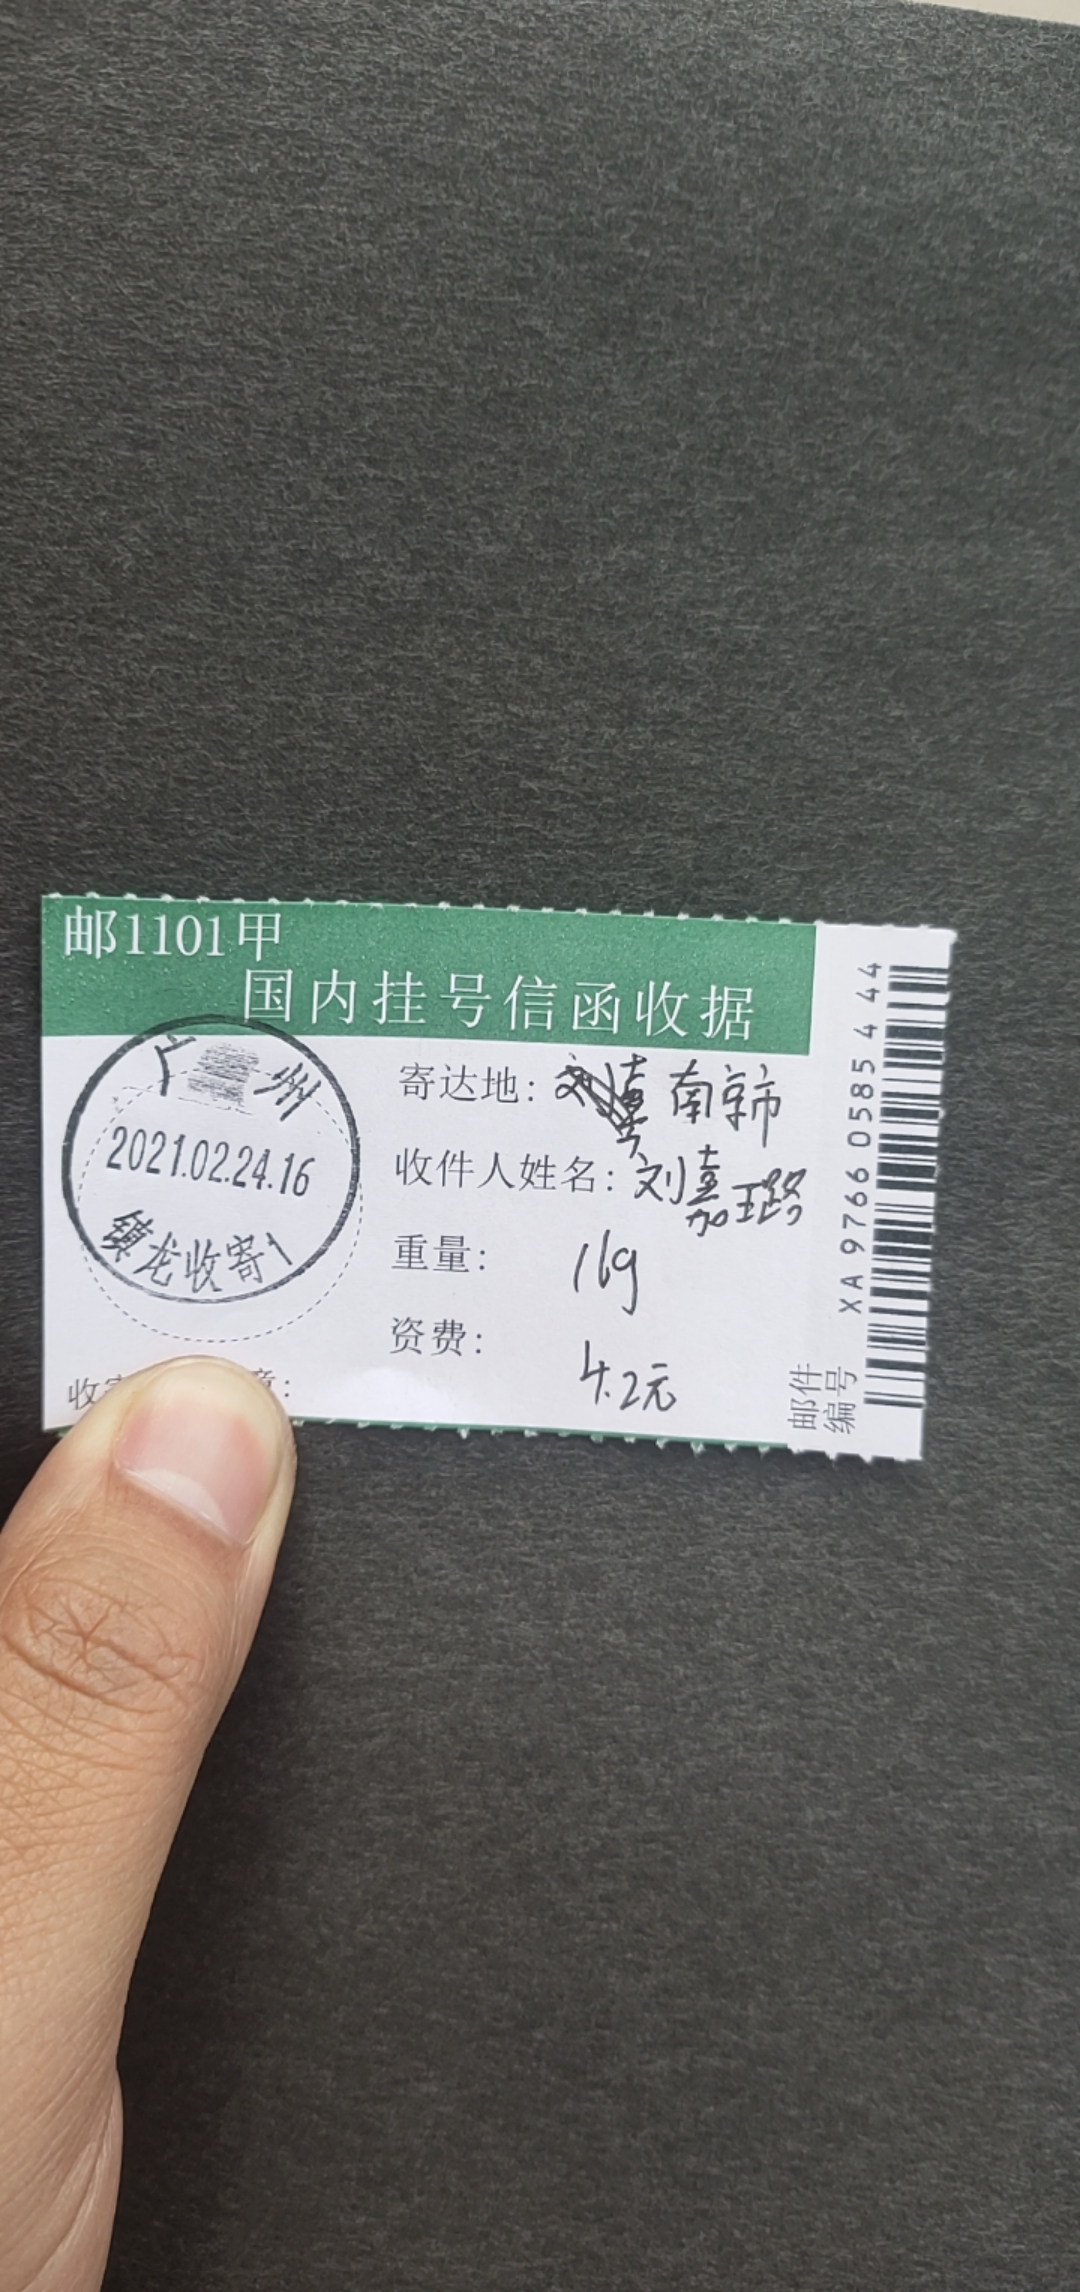 邮1101甲
国内挂号信函收据
广州
2021.02.24.16
镇龙收寄1
寄达地：南京市
收件人姓名：刘嘉璐
重量：16g
资费：4.2元
收
章：
邮件
编号
XA 9766 0585 4 44